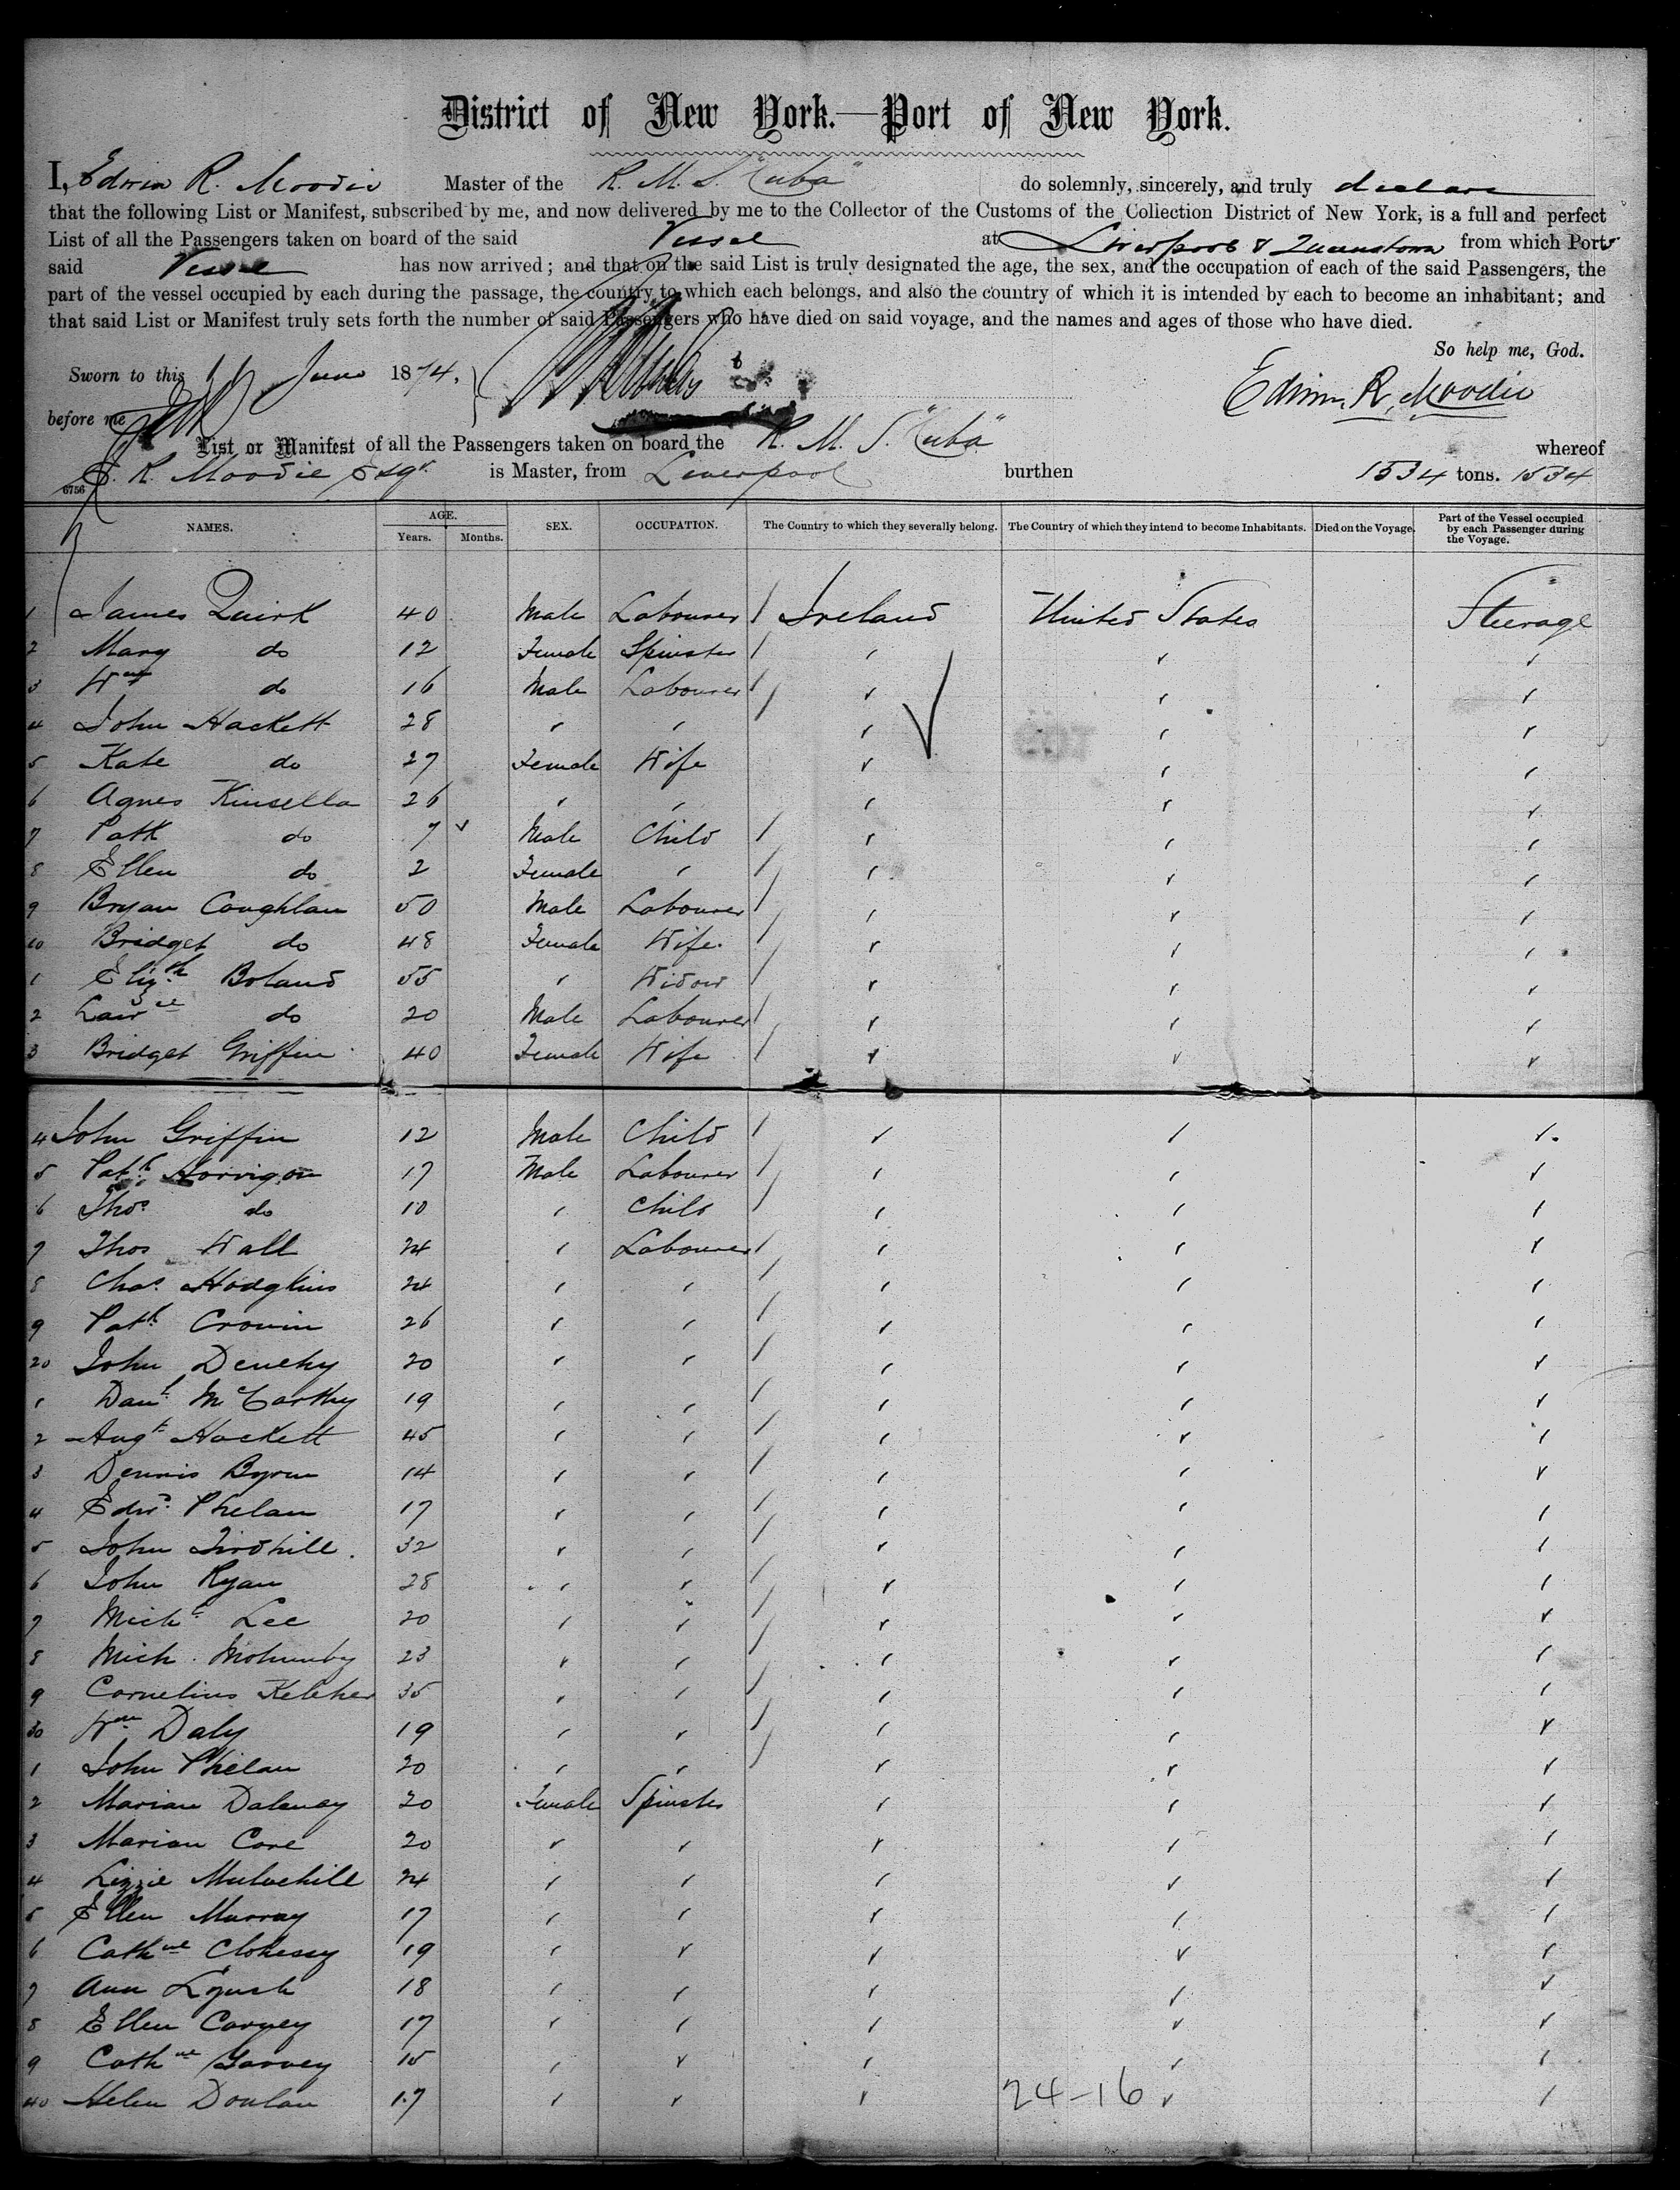 District of New York.—Port of New York.
I, Edwin R. Moodie Master of the R. M. S. "Cuba" do solemnly, sincerely, and truly declare
that the following List or Manifest, subscribed by me, and now delivered by me to the Collector of the Customs of the Collection District of New York, is a full and perfect
List of all the Passengers taken on board of the said Vessel at Liverpool & Queenstown from which Ports
said Vessel has now arrived; and that on the said List is truly designated the age, the sex, and the occupation of each of the said Passengers, the
part of the vessel occupied by each during the passage, the country to which each belongs, and also the country of which it is intended by each to become an inhabitant; and
that said List or Manifest truly sets forth the number of said Passengers who have died on said voyage, and the names and ages of those who have died.
So help me, God.
Sworn to this 11 June 1874,
Edwin R. Moodie
before me
List or Manifest of all the Passengers taken on board the R. M. S. "Cuba" whereof
E. R. Moodie Esqr. is Master, from Liverpool burthen 1534 tons. 1534
6756
NAMES. AGE. Years. Months. SEX. OCCUPATION. The Country to which they severally belong. The Country of which they intend to become Inhabitants. Died on the Voyage. Part of the Vessel occupied by each Passenger during the Voyage.
1 James Quirk 40 Male Labourer Ireland United States Steerage
2 Mary do 12 Female Spinster
3 Wm do 16 Male Labourer
4 John Hackett 28
5 Kate do 27 Female Wife
6 Agnes Kinsella 26
7 Patk do 7 Male Child
8 Ellen do 2 Female
9 Bryan Coughlan 50 Male Labourer
10 Bridget do 48 Female Wife.
1 Elizth Boland 55 Widow
2 Lawce do 20 Male Labourer
3 Bridget Griffin 40 Female Wife
4 John Griffin 12 Male Child
5 Patk Horrigan 17 Male Labourer
6 Thos do 10 Child
7 Thos Wall 24 Labourer
8 Chas. Hodgkins 24
9 Patk. Cronin 26
20 John Denehy 20
1 Danl. McCarthy 19
2 Augt Hackett 45
3 Dennis Byrne 14
4 Edwd. Phelan 17
5 John 32
6 John Ryan 28
7 Michl Lee 20
8 Mich. 23
9 Cornelius Keleher 35
30 Wm Daly 19
1 John Phelan 20
2 Marian Dalenay 20 Female Spinster
3 Marian Core 20
4 Lizzie Mulvehill 24
5 Ellen Murray 17
6 Cathne Clohessy 19
7 Ann Lynch 18
8 Ellen Carney 17
9 Cathne Garvey 15
40 Helen Donlan 17
24-16